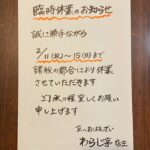 臨時休業のお知らせ
誠に勝手ながら
2/11(水)～15(日)まで
諸般の都合により休業
させていただきます
ご了承の程宜しくお願い
申し上げます
京のおばんざい
わらじ亭 店主